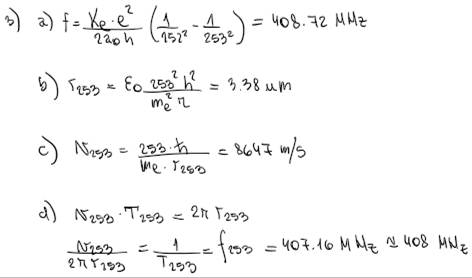 3) a) f = Ke·e² / 2a₀h (1/252² - 1/253²) = 408.72 MHz
b) r₂₅₃ = ε₀ 253² h² / me² π = 3.38 um
c) v₂₅₃ = 253·ħ / me·r₂₅₃ = 8647 m/s
d) v₂₅₃·T₂₅₃ = 2π r₂₅₃
v₂₅₃ / 2π r₂₅₃ = 1 / T₂₅₃ = f₂₅₃ = 407.16 MHz ≅ 408 MHz